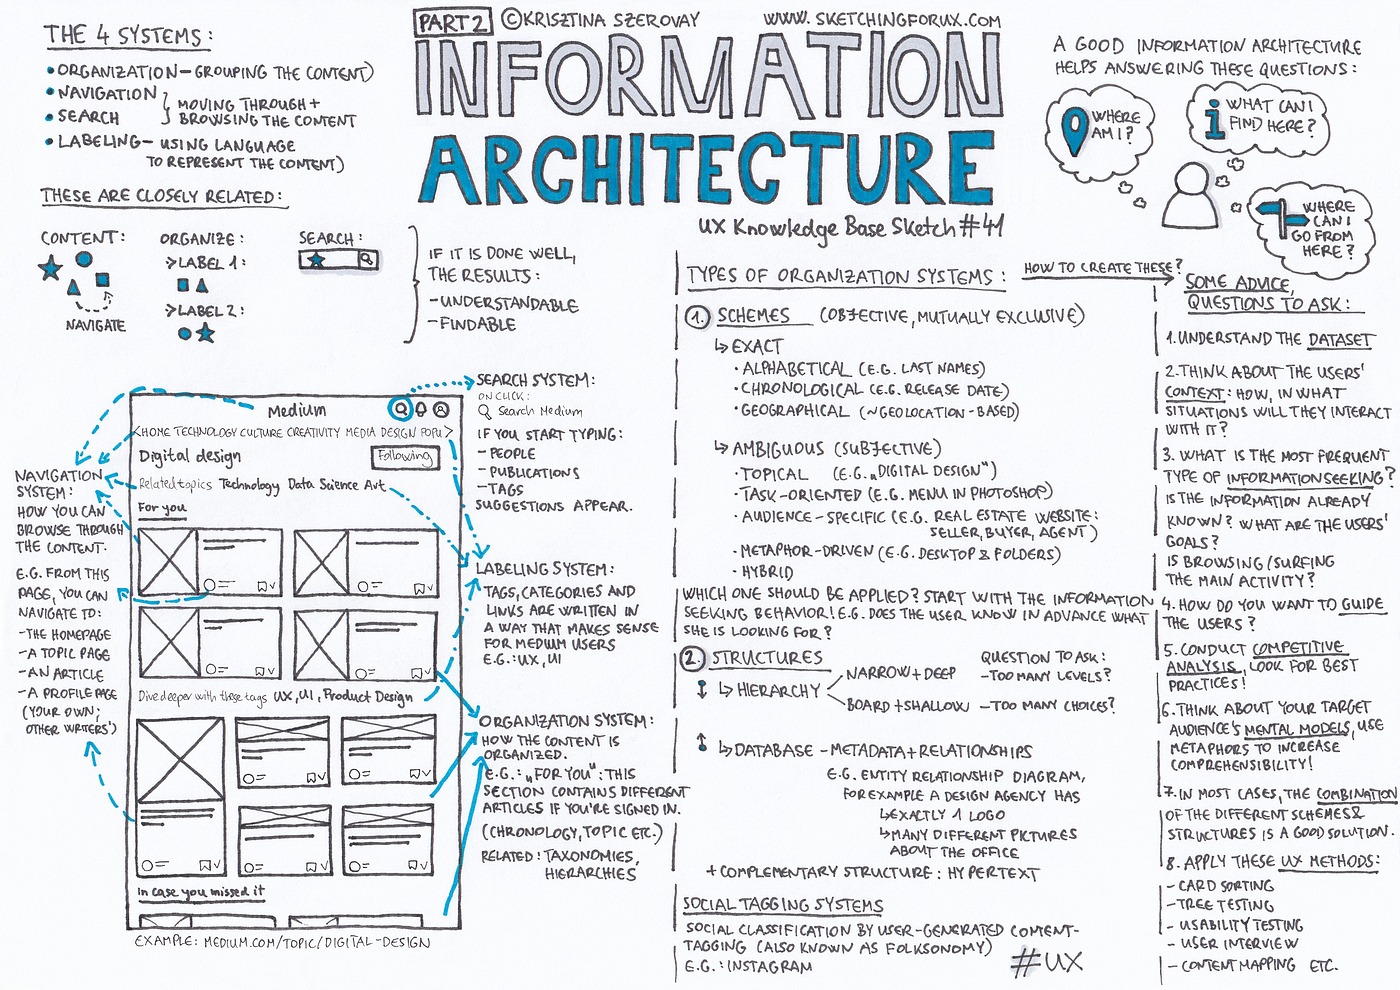 PART 2 ©KRISZTINA SZEROVAY WWW.SKETCHINGFORUX.COM
INFORMATION
ARCHITECTURE
UX Knowledge Base Sketch #41
THE 4 SYSTEMS:
• ORGANIZATION – GROUPING THE CONTENT)
• NAVIGATION
• SEARCH
MOVING THROUGH +
BROWSING THE CONTENT
• LABELING – USING LANGUAGE
TO REPRESENT THE CONTENT)
THESE ARE CLOSELY RELATED:
CONTENT:
NAVIGATE
ORGANIZE:
>LABEL 1:
>LABEL 2:
SEARCH:
IF IT IS DONE WELL,
THE RESULTS:
-UNDERSTANDABLE
-FINDABLE
A GOOD INFORMATION ARCHITECTURE
HELPS ANSWERING THESE QUESTIONS:
WHERE
AM I?
i WHAT CAN I
FIND HERE?
WHERE
CAN I
GO FROM
HERE?
Medium
<HOME TECHNOLOGY CULTURE CREATIVITY MEDIA DESIGN POPU>
Digital design
Following
Related topics Technology Data Science Art
For you
Dive deeper with these tags UX, UI, Product Design
In case you missed it
EXAMPLE: MEDIUM.COM/TOPIC/DIGITAL-DESIGN
NAVIGATION
SYSTEM:
HOW YOU CAN
BROWSE THROUGH
THE CONTENT.
E.G. FROM THIS
PAGE, YOU CAN
NAVIGATE TO:
-THE HOMEPAGE
-A TOPIC PAGE
-AN ARTICLE
-A PROFILE PAGE
(YOUR OWN;
OTHER WRITERS')
SEARCH SYSTEM:
ON CLICK:
Search Medium
IF YOU START TYPING:
-PEOPLE
-PUBLICATIONS
-TAGS
SUGGESTIONS APPEAR.
LABELING SYSTEM:
TAGS, CATEGORIES AND
LINKS ARE WRITTEN IN
A WAY THAT MAKES SENSE
FOR MEDIUM USERS
E.G.: UX, UI
ORGANIZATION SYSTEM:
HOW THE CONTENT IS
ORGANIZED.
E.G.: „FOR YOU": THIS
SECTION CONTAINS DIFFERENT
ARTICLES IF YOU'RE SIGNED IN.
(CHRONOLOGY, TOPIC ETC.)
RELATED: TAXONOMIES,
HIERARCHIES
TYPES OF ORGANIZATION SYSTEMS:
HOW TO CREATE THESE?
1. SCHEMES (OBJECTIVE, MUTUALLY EXCLUSIVE)
↳ EXACT
• ALPHABETICAL (E.G. LAST NAMES)
• CHRONOLOGICAL (E.G. RELEASE DATE)
• GEOGRAPHICAL (~GEOLOCATION-BASED)
↳ AMBIGUOUS (SUBJECTIVE)
• TOPICAL (E.G. „DIGITAL DESIGN")
• TASK-ORIENTED (E.G. MENU IN PHOTOSHOP)
• AUDIENCE-SPECIFIC (E.G. REAL ESTATE WEBSITE:
SELLER, BUYER, AGENT)
• METAPHOR-DRIVEN (E.G. DESKTOP & FOLDERS)
• HYBRID
WHICH ONE SHOULD BE APPLIED? START WITH THE INFORMATION
SEEKING BEHAVIOR! E.G. DOES THE USER KNOW IN ADVANCE WHAT
SHE IS LOOKING FOR?
2. STRUCTURES
↳ HIERARCHY
NARROW + DEEP
BOARD + SHALLOW
QUESTION TO ASK:
-TOO MANY LEVELS?
-TOO MANY CHOICES?
↳ DATABASE – METADATA + RELATIONSHIPS
E.G. ENTITY RELATIONSHIP DIAGRAM,
FOR EXAMPLE A DESIGN AGENCY HAS
↳ EXACTLY 1 LOGO
↳ MANY DIFFERENT PICTURES
ABOUT THE OFFICE
+ COMPLEMENTARY STRUCTURE: HYPERTEXT
SOCIAL TAGGING SYSTEMS
SOCIAL CLASSIFICATION BY USER-GENERATED COMENT-
TAGGING (ALSO KNOWN AS FOLKSONOMY)
E.G.: INSTAGRAM
#UX
SOME ADVICE,
QUESTIONS TO ASK:
1. UNDERSTAND THE DATASET
2. THINK ABOUT THE USERS'
CONTEXT: HOW, IN WHAT
SITUATIONS WILL THEY INTERACT
WITH IT?
3. WHAT IS THE MOST FREQUENT
TYPE OF INFORMATION SEEKING?
IS THE INFORMATION ALREADY
KNOWN? WHAT ARE THE USERS'
GOALS?
IS BROWSING/SURFING
THE MAIN ACTIVITY?
4. HOW DO YOU WANT TO GUIDE
THE USERS?
5. CONDUCT COMPETITIVE
ANALYSIS, LOOK FOR BEST
PRACTICES!
6. THINK ABOUT YOUR TARGET
AUDIENCE'S MENTAL MODELS, USE
METAPHORS TO INCREASE
COMPREHENSIBILITY!
7. IN MOST CASES, THE COMBINATION
OF THE DIFFERENT SCHEMES &
STRUCTURES IS A GOOD SOLUTION.
8. APPLY THESE UX METHODS:
- CARD SORTING
- TREE TESTING
- USABILITY TESTING
- USER INTERVIEW
- CONTENT MAPPING ETC.